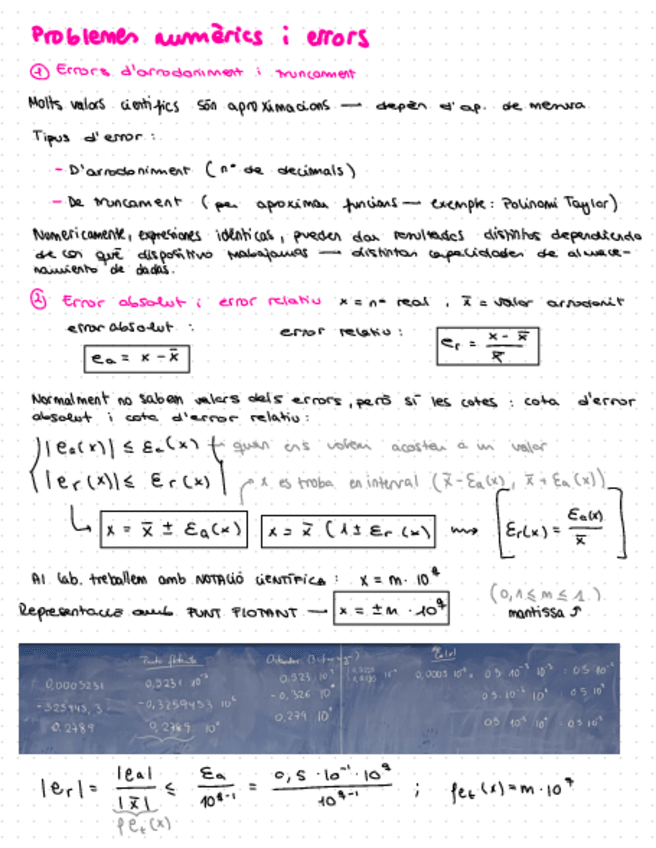 Problemes numèrics i errors
① Errors d'arrodoniment i truncament
Molts valors científics són aproximacions — depèn d'ap. de mesura
Tipus d'error :
- D'arrodoniment (nº de decimals)
- De truncament (per aproximar funcions — exemple: Polinomi Taylor)
Numericamente, expresiones idénticas, pueden dar resultados distintos dependiendo
de con qué dispositivo trabajamos — distintas capacidades de almace-
namiento de dadas.
② Error absolut i error relatiu x = nº real , x̄ = valor arrodonit
error absolut : error relatiu :
e_a = x - x̄ e_r = (x - x̄) / x̄
Normalment no sabem valors dels errors, però sí les cotes : cota d'error
absolut i cota d'error relatiu :
|e_a(x)| ≤ ε_a(x) quan ens volem acostar a un valor
|e_r(x)| ≤ ε_r(x) x es troba en interval (x̄ - ε_a(x), x̄ + ε_a(x))
x = x̄ ± ε_a(x) x = x̄ (1 ± ε_r(x) ε_r(x) = ε_a(x) / x̄
Al lab. treballem amb NOTACIÓ CIENTÍFICA : x = m · 10^q
(0,1 ≤ m ≤ 1)
Representació amb PUNT FLOTANT — x = ± m · 10^q mantissa
0,0005231 0,5231 10⁻³ 0.523 10 0,0005 10
-325945,3 -0,3259453 10⁶ -0,326 10
0.2789 0,2789 10⁰ 0,279 10⁰
|e_r| = |e_a| / |x̄| ≤ ε_a / 10^(q-1) = 0,5 · 10^-t · 10^q / 10^(q-1) ; fl_t(x) = m · 10^q
fl_t(x)